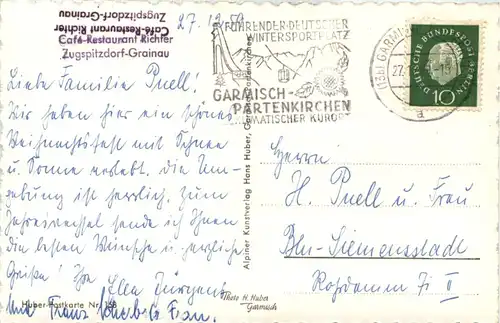 Café-Restaurant Richter
Zugspitzdorf-Grainau
Café-Restaurant Richter
Zugspitzdorf-Grainau
27.12.59
FÜHRENDER DEUTSCHER
WINTERSPORTPLATZ
GARMISCH-
PARTENKIRCHEN
KLIMATISCHER KURORT
(13b) GARMISCH
27.
a
DEUTSCHE BUNDESPOST BERLIN
10
Liebe Familie Puell!
Wir haben hier ein schönes
Weihnachtsfest mit Schnee
u. Sonne erlebt. Die Um-
gebung ist herrlich. Zum
Jahreswechsel sende ich Ihnen
die besten Wünsche u. herzliche
Grüße! Ihre Ella Jürgens
und Franz Frau.
Alpiner Kunstverlag Hans Huber, Garmisch-Partenkirchen
Herrn
H. Puell u. Frau
Bln-Siemensstadt
Rohrdamm
Huber-Postkarte Nr. 158
Photo H. Huber
Garmisch